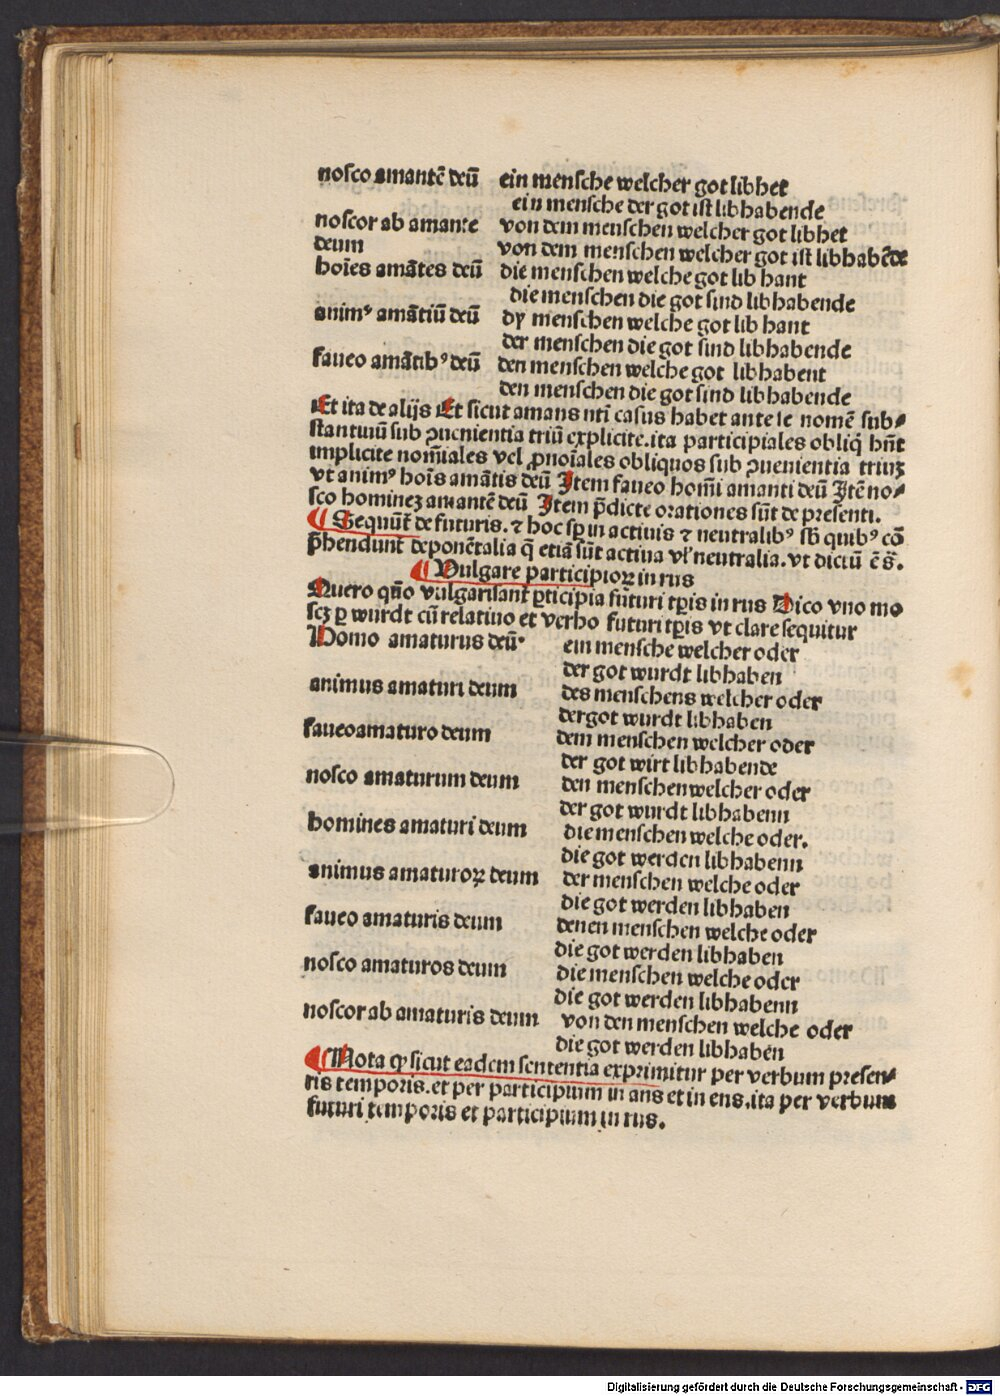 nosco amantē deū ein mensche welcher got libhet
ein mensche der got ist libhabende
noscor ab amante von dem menschen welcher got libhet
deum von dem menschen welcher got ist libhabēde
hoīes amātes deū die menschen welche got lib hant
die menschen die got sind libhabende
animꝰ amātiū deū dy menschen welche got lib hant
der menschen die got sind libhabende
faueo amātibꝰ deū den menschen welche got libhabent
den menschen die got sind libhabende
Et ita de alijs Et sicut amans nti casus habet ante se nomē sub⸗
stantiuū sub ꝯuenientia triū explicite. ita participiales obliq̄ hn̄t
implicite nom̄iales vel ꝓnoīales obliquos sub ꝯuenientia triuꝫ
vt animꝰ hoīs amātis deū Item faueo homī amanti deū Itē no⸗
sco hominez amantē deū Item p̄dicte orationes sūt de presenti.
¶ Sequūt̄ de futuris. ⁊ hoc sꝑ in actiuis ⁊ neutralibꝰ sb̄ quibꝰ cō
p̄hendunt̄ deponētalia q̄ etiā sūt actiua vl̓ neutralia. vt dictū ē s̄.
¶ Vulgare participioꝝ in rus
Quero qn̄o vulgarisant̄ ꝑticipia futuri tꝑis in rus Dico vno mo
scꝫ ꝑ wurdt cū relatiuo et verbo futuri tꝑis vt clare sequitur
Homo amaturus deū. ein mensche welcher oder
der got wurdt libhaben
animus amaturi deum des menschens welcher oder
dergot wurdt libhaben
faueoamaturo deum dem menschen welcher oder
der got wirt libhabende
nosco amaturum deum den menschenwelcher oder
der got wurdt libhabenn
homines amaturi deum die menschen welche oder.
die got werden libhabenn
animus amaturoꝝ deum der menschen welche oder
die got werden libhaben
faueo amaturis deum denen menschen welche oder
die got werden libhaben
nosco amaturos deum die menschen welche oder
die got werden libhabenn
noscor ab amaturis deum von den menschen welche oder
die got werden libhaben
¶ Nota ꝙ sicut eadem sententia exprimitur per verbum presen⸗
tis temporis. et per participium in ans et in ens. ita per verbum
futuri temporis et participium in rus.
Digitalisierung gefördert durch die Deutsche Forschungsgemeinschaft - DFG